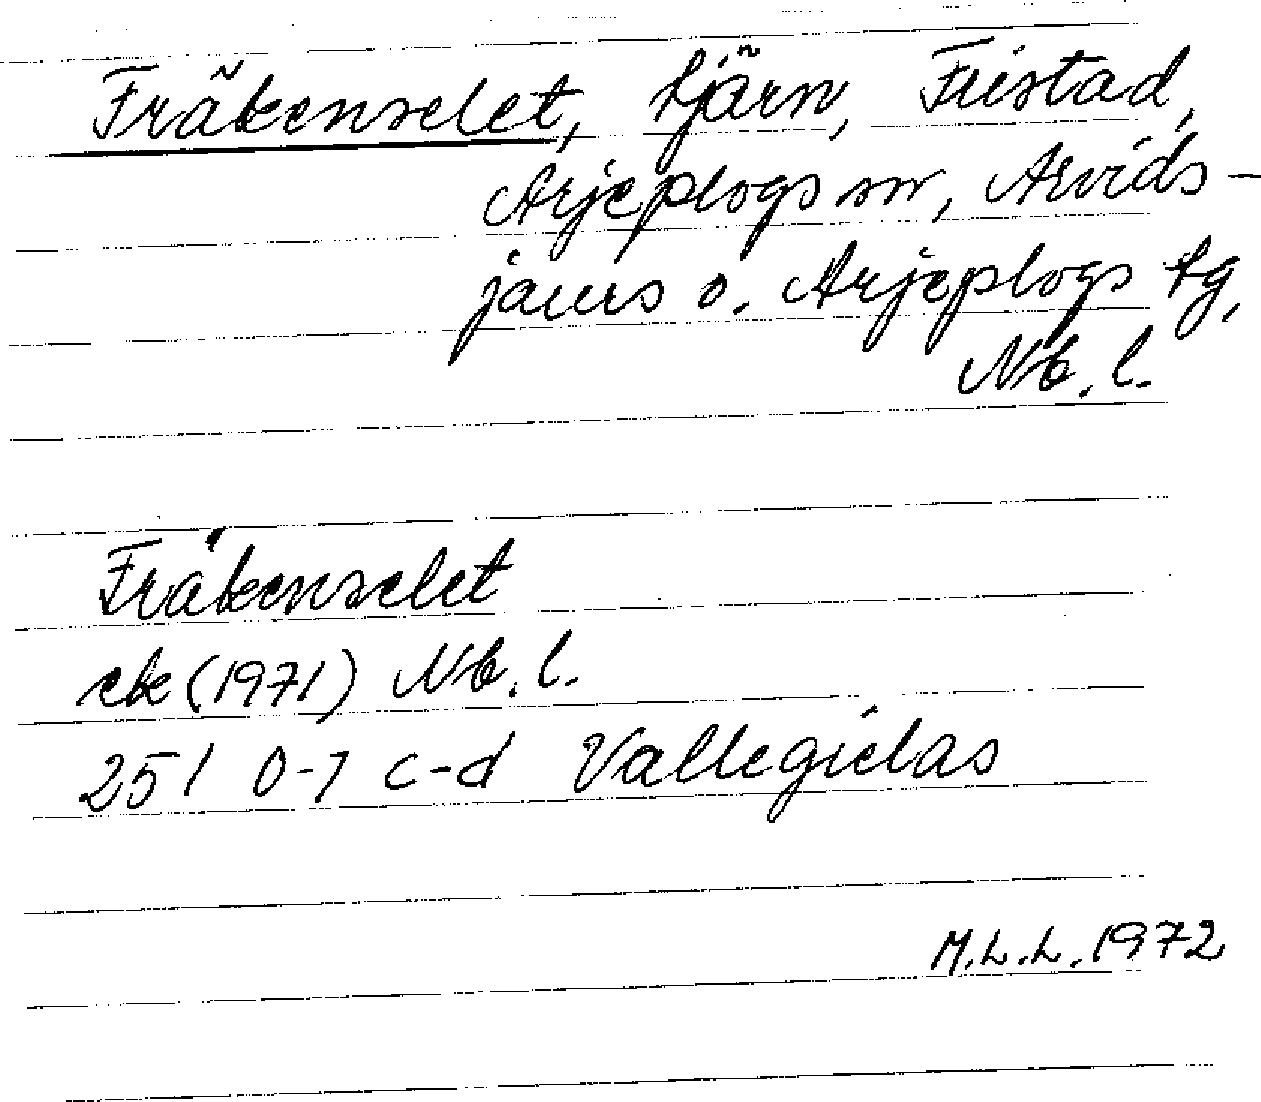 Fräkenselet, tjärn, Fristad,
Arjeplogs sn, Arvids-
jaurs o. Arjeplogs tg,
Nb. l.
Fräkenselet
ek (1971) Nb. l.
25I 0-1 c-d Vallegielas
M.L.L. 1972